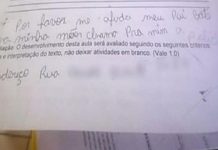 Por favor me ajuda meu Pai
minha mãe chama Pra mim a
ação: O desenvolvimento desta aula será avaliado seguindo os seguintes critérios
e interpretação do texto, não deixar atividades em branco. (Vale 1,0)
Rua